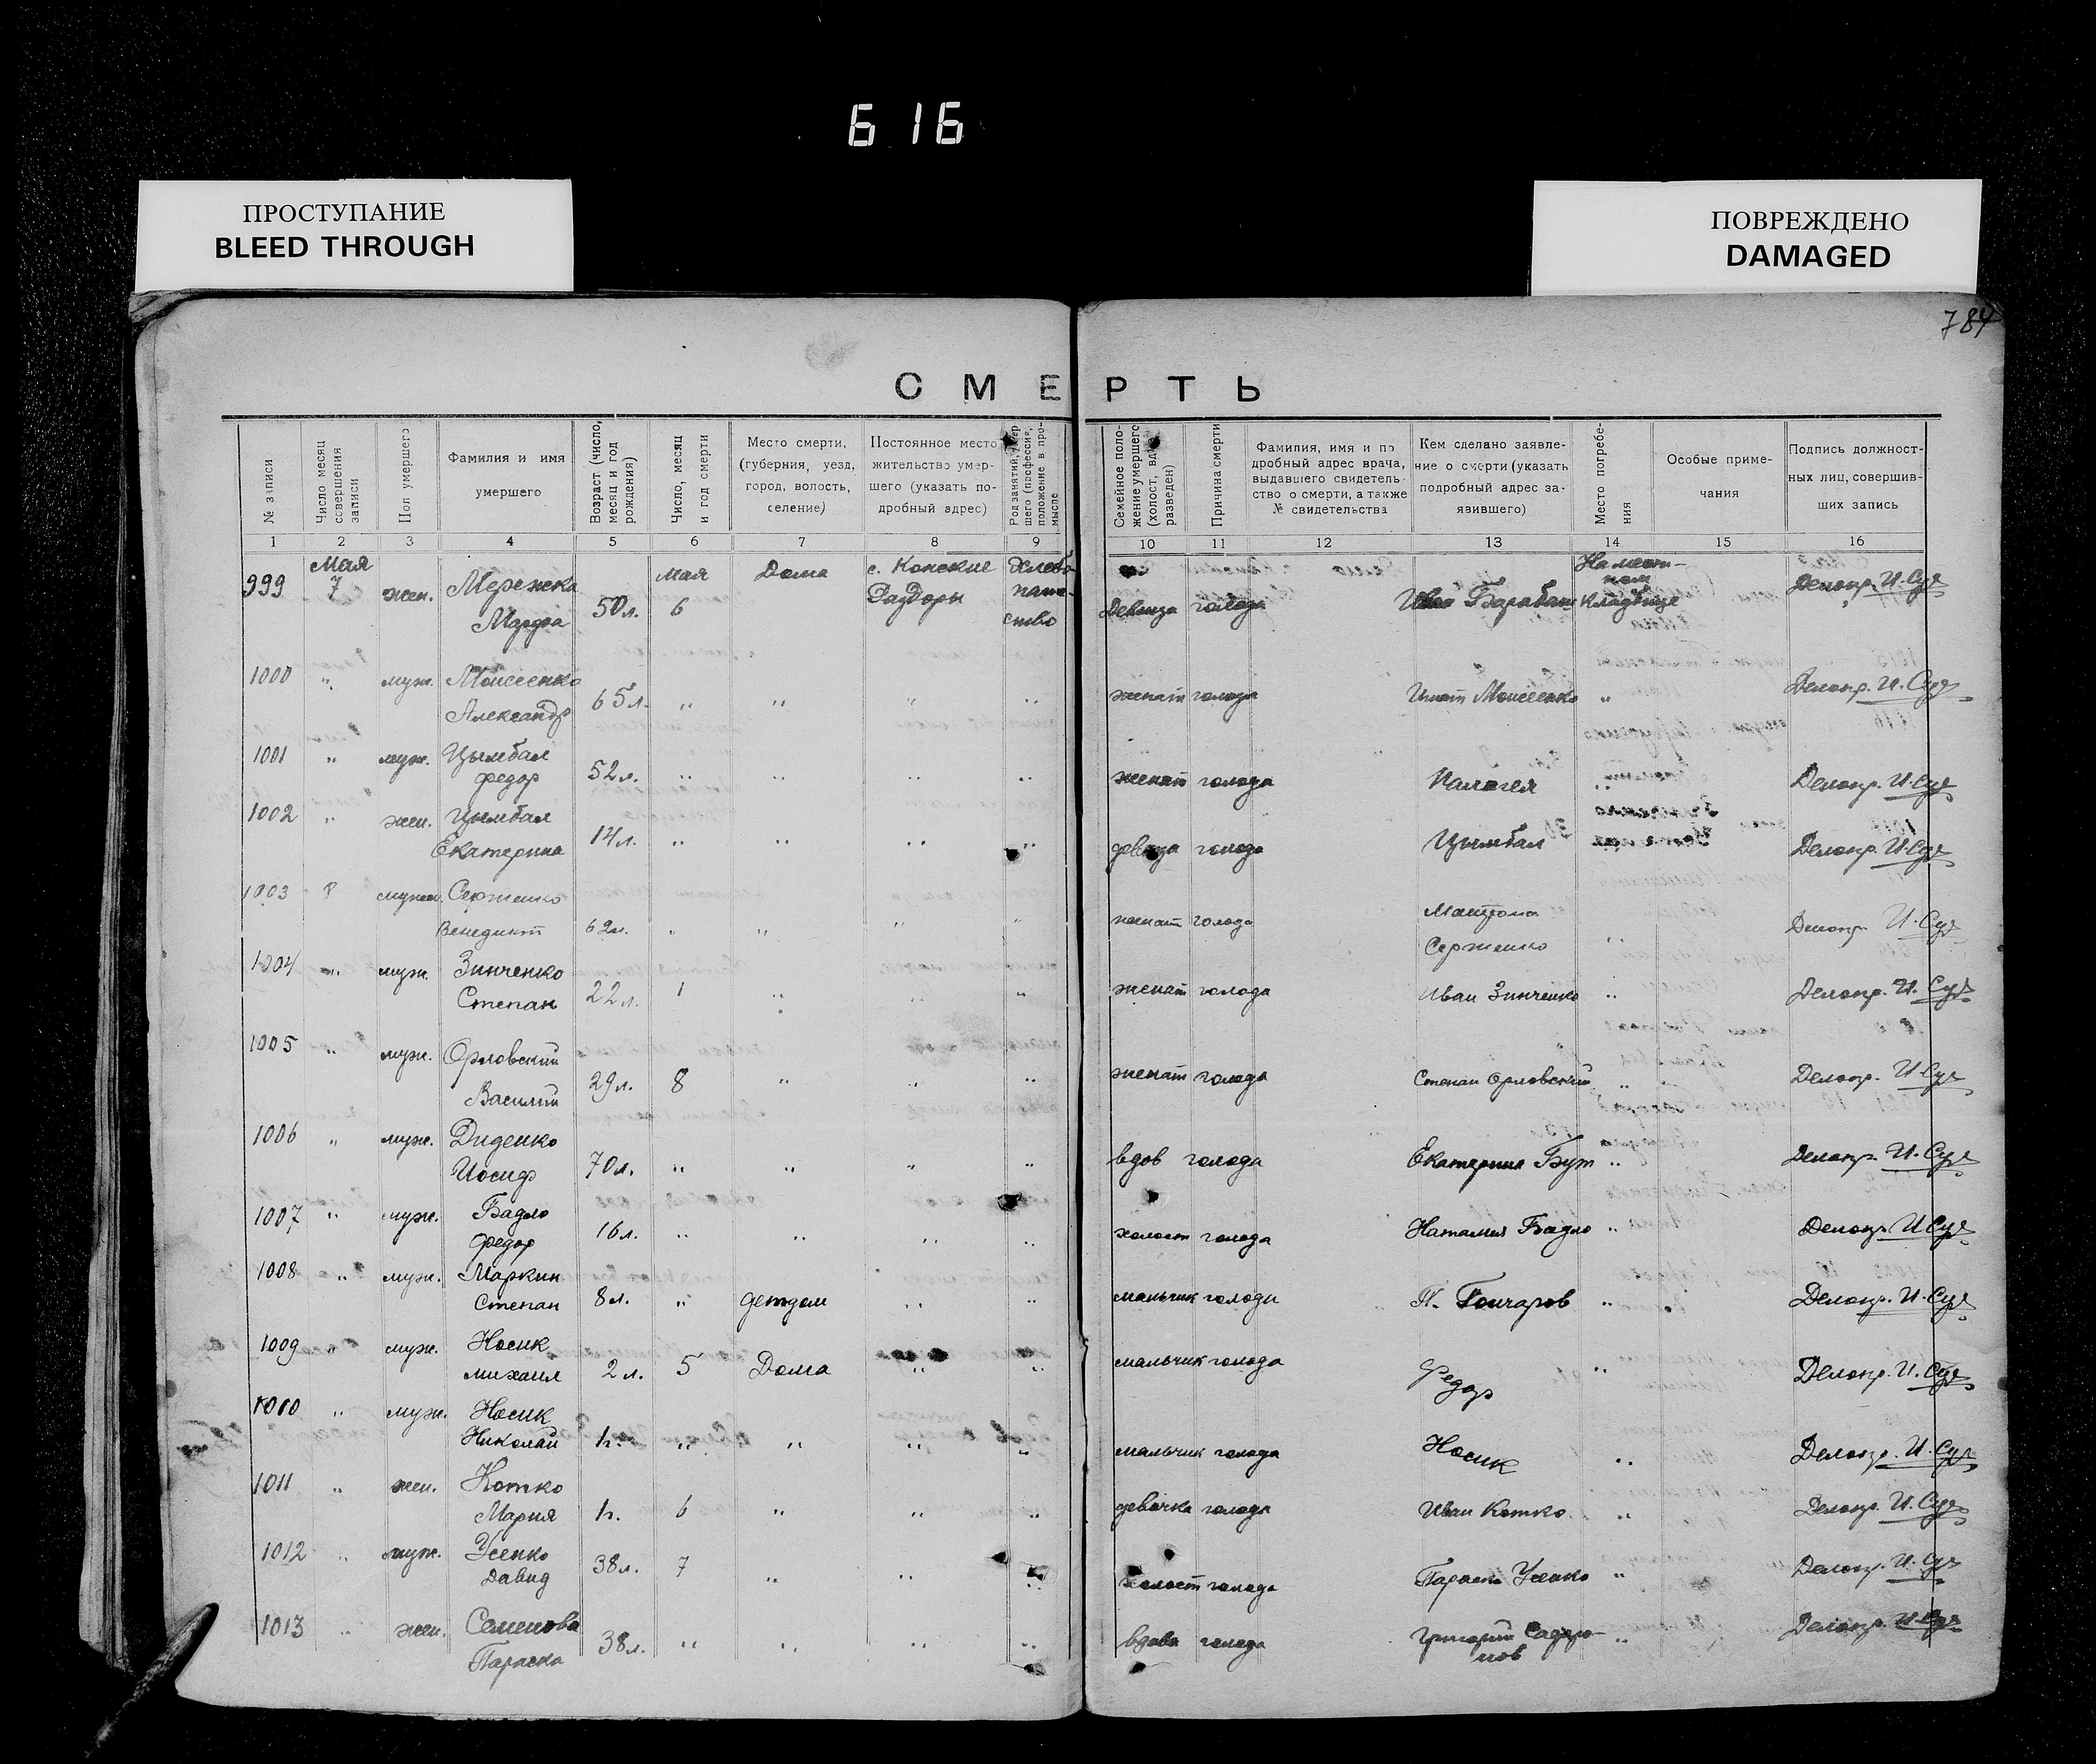 616
ПРОСТУПАНИЕ
BLEED THROUGH
ПОВРЕЖДЕНО
DAMAGED
784
СМЕРТЬ
№ записи
Число месяц совершения записи
Пол умершего
Фамилия и имя умершего
Возраст (число, месяц и год рождения)
Число, месяц и год смерти
Место смерти, (губерния, уезд, город, волость, селение)
Постоянное место жительство умершего (указать подробный адрес)
Род занятий, умершего (профессия, положение в промысле
Семейное положение умершего (холост, вдов, разведен)
Причина смерти
Фамилия, имя и подробный адрес врача, выдавшего свидетельство о смерти, а также № свидетельства
Кем сделано заявление о смерти (указать подробный адрес заявившего)
Место погребения
Особые примечания
Подпись должностных лиц, совершивших запись
1 2 3 4 5 6 7 8 9 10 11 12 13 14 15 16
999 Мая 7 жен. Мережка Марфа 50 л. Мая 6 Дома с. Конские Раздоры Хлебопашество девица голода Иван Барабаш На местном кладбище Делопр. И. Суд
1000 " муж. Моисеенко Александр 65 л. " " " " женат голода Игнат Моисеенко " Делопр. И. Суд
1001 " муж. Цымбал Федор 52 л. " " " " женат голода Палагея " Делопр. И. Суд
1002 " жен. Цымбал Екатерина 14 л. " " " " девица голода Цымбал " Делопр. И. Суд
1003 8 мужч. Сергиенко Венедикт 62 л. " " " " женат голода Сергиенко " Делопр. И. Суд
1004 " муж. Зинченко Степан 22 л. 1 " " " женат голода Иван Зинченко " Делопр. И. Суд
1005 " муж. Орловский Василий 29 л. 8 " " " женат голода Степан Орловский " Делопр. И. Суд
1006 " муж. Диденко Иосиф 70 л. " " " " вдов голода Екатерина Бут " Делопр. И. Суд
1007 " муж. Бадло Федор 16 л. " " " " холост голода Наталия Бадло " Делопр. И. Суд
1008 " муж. Маркин Степан 8 л. " детдом " " мальчик голода П. Гончаров " Делопр. И. Суд
1009 " муж. Носик Михаил 2 л. 5 Дома " " мальчик голода Федор " Делопр. И. Суд
1010 " муж. Носик Николай 1 г. " " " " мальчик голода Носик " Делопр. И. Суд
1011 " жен. Котко Мария 1 г. 6 " " " девочка голода Иван Котко " Делопр. И. Суд
1012 " муж. Усенко Давид 38 л. 7 " " " холост голода Параска Усенко " Делопр. И. Суд
1013 " жен. Семенова Параска 38 л. " " " " вдова голода Григорий " Делопр. И. Суд